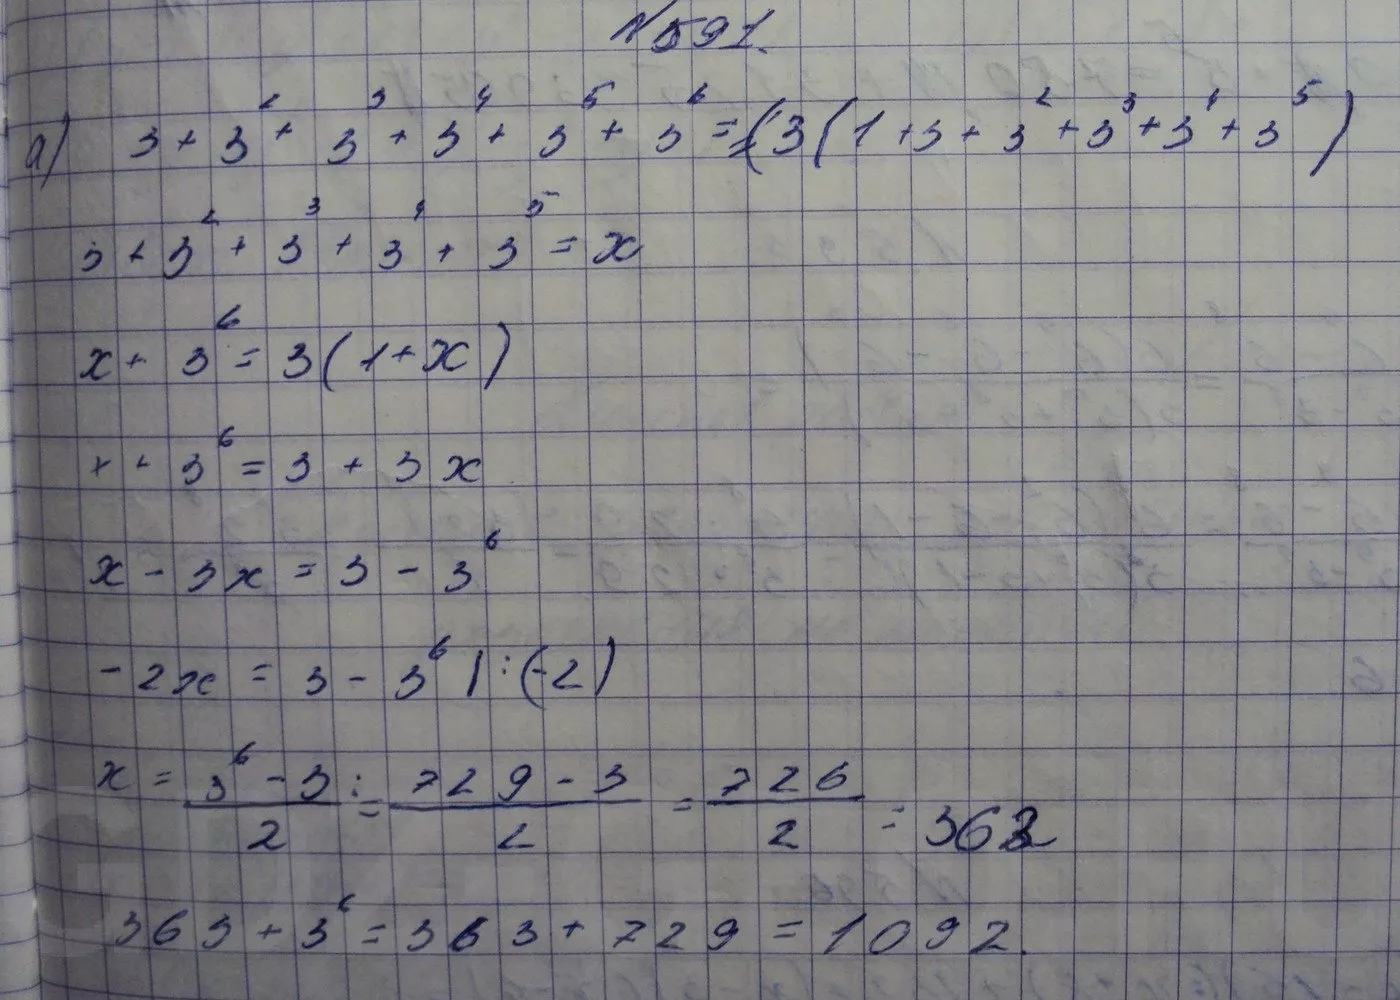 №591.
а) 3 + 3² + 3³ + 3⁴ + 3⁵ + 3⁶ = (3(1 + 3 + 3² + 3³ + 3⁴ + 3⁵)
3 + 3² + 3³ + 3⁴ + 3⁵ = x
x + 3⁶ = 3(1 + x)
x + 3⁶ = 3 + 3x
x - 3x = 3 - 3⁶
-2x = 3 - 3⁶ | : (-2)
x = (3⁶ - 3)/2 = (729 - 3)/2 = 726/2 = 363
363 + 3⁶ = 363 + 729 = 1092.